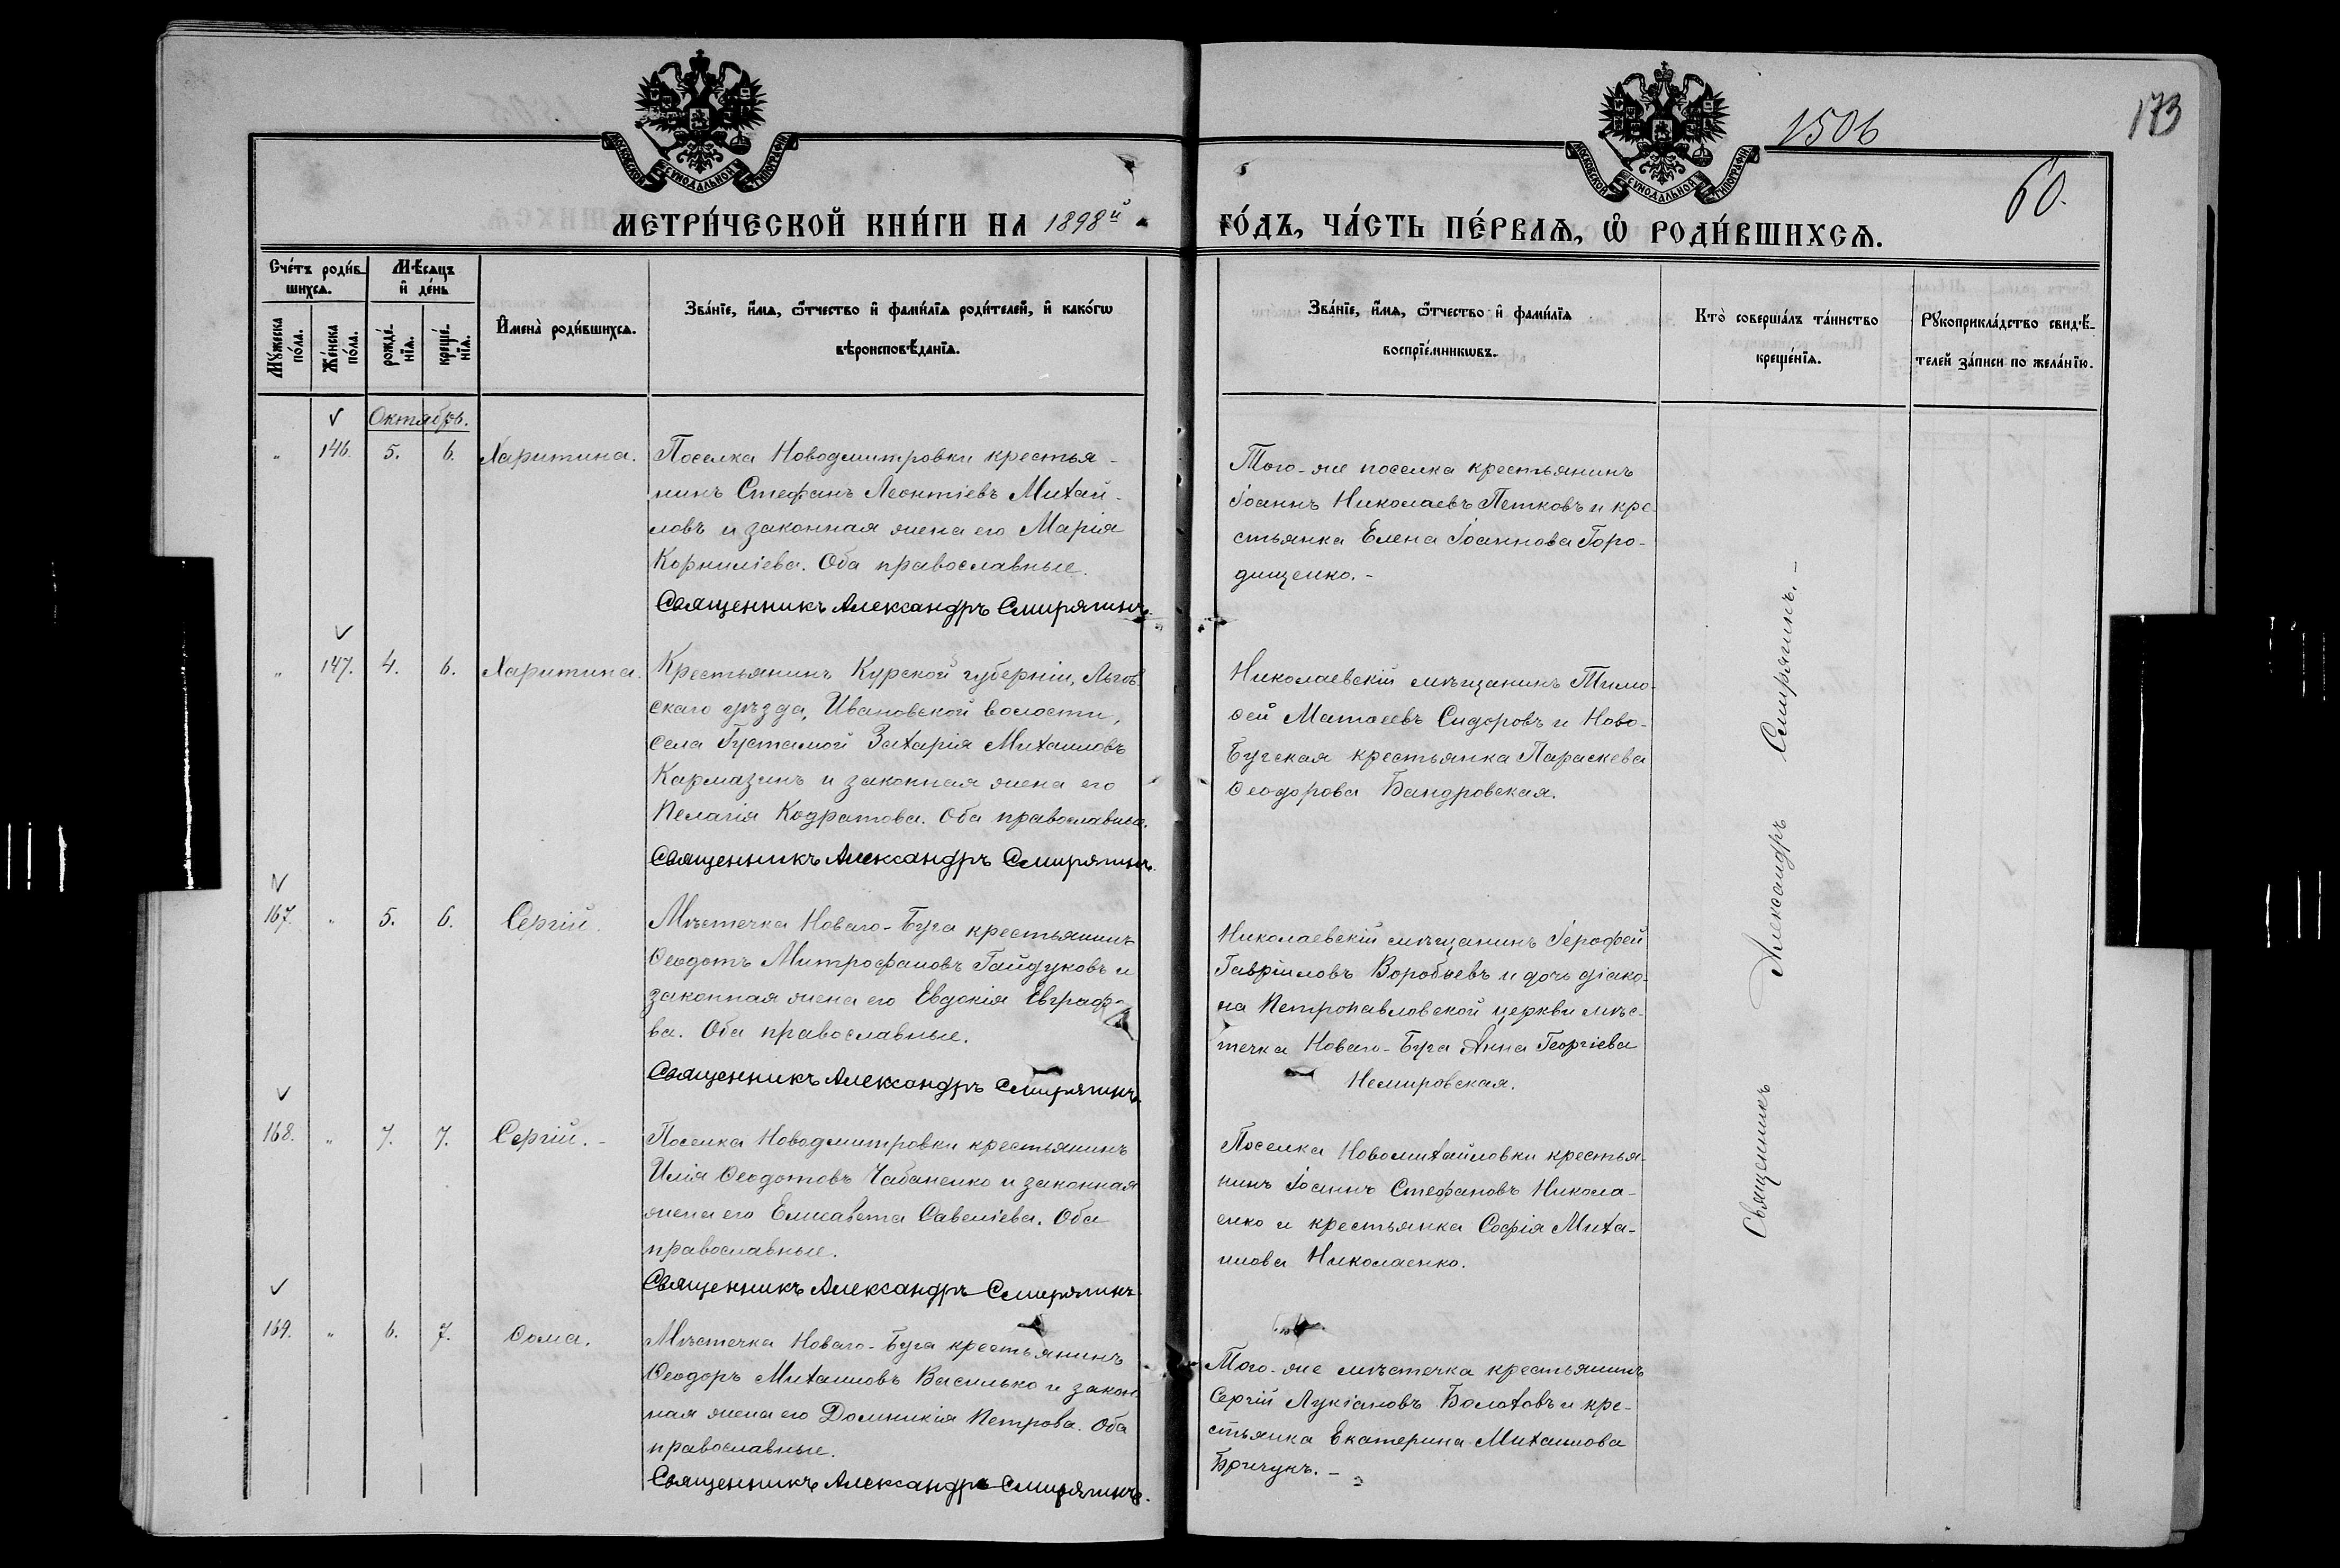 1506
173
60.
МОСКОВСКОЙ СѴНОДАЛЬНОЙ ТИПОГРАФІИ
МОСКОВСКОЙ СѴНОДАЛЬНОЙ ТИПОГРАФІИ
МЕТРИ́ЧЕСКОЙ КНИ́ГИ НА 1898й
ГО́ДЪ, ЧА́СТЬ ПЕ́РВАѦ, Ѡ҆ РОДИ́ВШИХСѦ.
Сче́тъ роди́в-
шихсѧ.
Мꙋ́жеска
по́ла.
Же́нска
по́ла.
Мѣ́сѧцъ
и҆ де́нь
рожде́-
нїѧ.
креще́-
нїѧ.
И҆мена̀ роди́вшихсѧ.
Зва́нїе, и҆́мѧ, ѻ҆́тчество и҆ фами́лїѧ роди́телей, и҆ како́гѡ
вѣроисповѣ́данїѧ.
Зва́нїе, и҆́мѧ, ѻ҆́тчество и҆ фами́лїѧ
воспрїе́мникѡвъ.
Кто̀ соверша́лъ та́инство
креще́нїѧ.
Рꙋкоприкла́дство свидѣ́-
телей за́писи по жела́нїю.
Октябрь.
„ 146. 5. 6. Харитина.
Поселка Новодмитровки крестья-
нинъ Стефанъ Леонтіевъ Михай-
ловъ и законная жена его Марія
Корниліева. Оба православные.
Священникъ Александръ Смирягинъ.
Того-же поселка крестьянинъ
Іоаннъ Николаевъ Петковъ и кре-
стьянка Елена Іоаннова Горо-
дищенко.-
„ 147. 4. 6. Харитина.
Крестьянинъ Курской губерніи, Льгов-
скаго уѣзда, Ивановской волости,
села Густомой Захарія Михаиловъ
Кармазинъ и законная жена его
Пелагія Кодратова. Оба православные.
Священникъ Александръ Смирягинъ.
Николаевскій мѣщанинъ Тимо-
ѳей Матѳеевъ Сидоровъ и Ново-
Бугская крестьянка Параскева
Ѳеодорова Бандровская.
167. „ 5. 6. Сергій.
Мѣстечка Новаго-Буга крестьянинъ
Ѳеодотъ Митрофановъ Гайдуковъ и
законная жена его Евдокія Евграфо-
ва. Оба православные.
Священникъ Александръ Смирягинъ.
Николаевскій мѣщанинъ Іерофей
Гавріиловъ Воробьевъ и дочь діако-
на Петропавловской церкви мѣс-
течка Новаго-Буга Анна Георгіева
Немировская.
168. „ 7. 7. Сергій.-
Поселка Новодмитровки крестьянинъ
Илія Ѳеодотовъ Чабаненко и законная
жена его Елисавета Савеліева. Оба
православные.
Священникъ Александръ Смирягинъ.
Поселка Новомихайловки крестья-
нинъ Іоаннъ Стефановъ Никола-
енко и крестьянка Софія Миха-
илова Николаенко.
169. „ 6. 7. Ѳома.
Мѣстечка Новаго-Буга крестьянинъ
Ѳеодоръ Михаиловъ Василько и закон-
ная жена его Домникія Петрова. Оба
православные.
Священникъ Александръ Смирягинъ.
Того-же мѣстечка крестьянинъ
Сергій Лукіановъ Болотовъ и кре-
стьянка Екатерина Михаилова
Бричукъ.-
Священникъ Александръ Смирягинъ.-